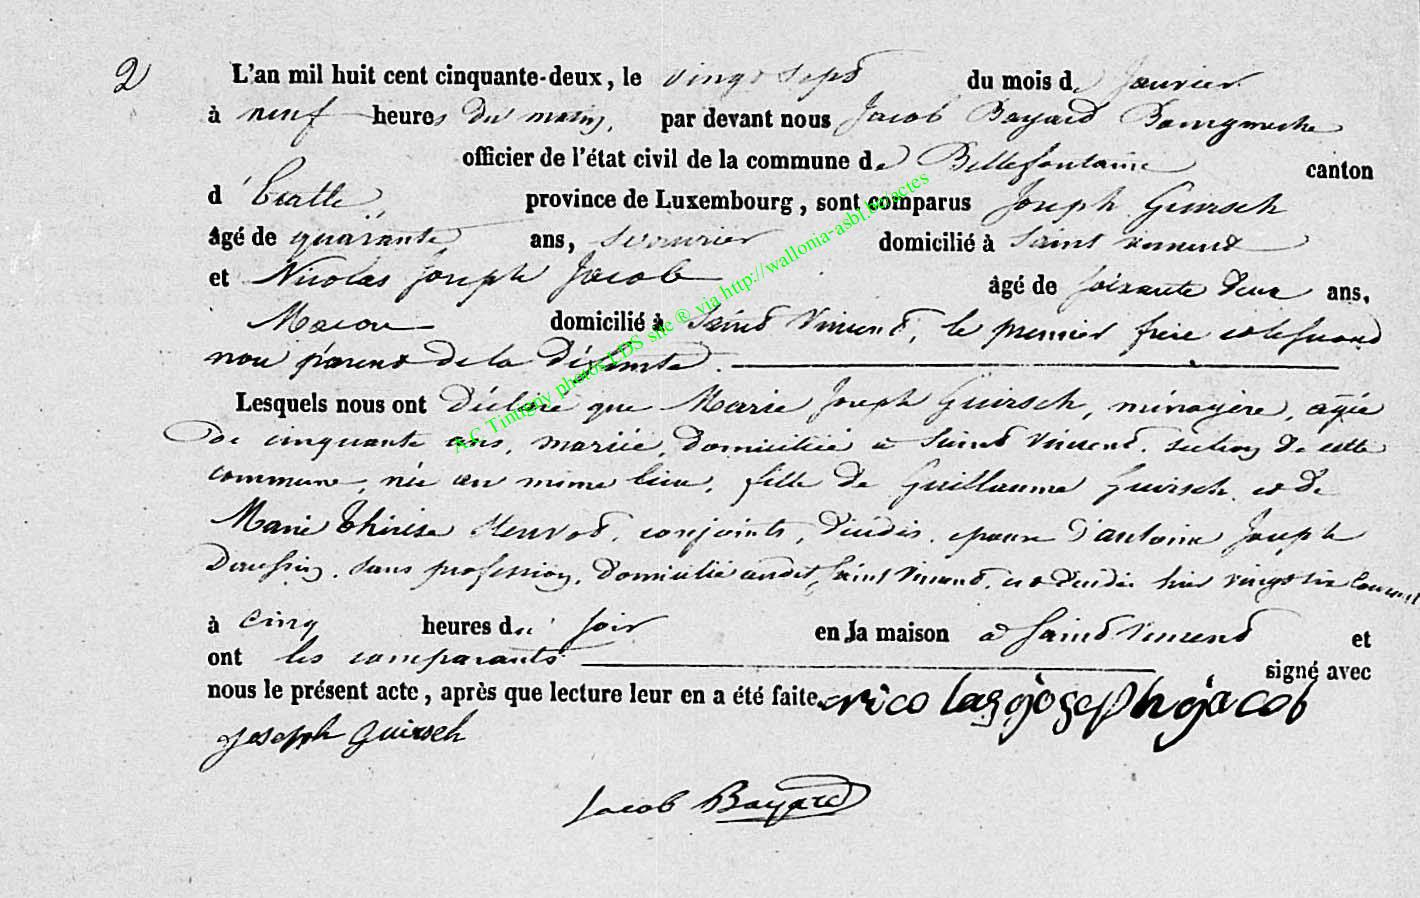 2
L'an mil huit cent cinquante-deux, le vingt sept du mois de Janvier
à neuf heures du matin, par devant nous Jacob Bayard Bourgmestre
officier de l'état civil de la commune de Bellefontaine canton
d'Etalle province de Luxembourg, sont comparus Joseph Guirsch
âgé de quarante ans, serrurier domicilié à Saint Vincent
et Nicolas Joseph Jacob âgé de soixante deux ans,
Macon domicilié à Saint Vincent, le premier frère et le second
non parent de la Défunte.
Lesquels nous ont Déclaré que Marie Joseph Guirsch, ménagère, agée
de cinquante ans, mariée, domiciliée à Saint Vincent, section de cette
commune, née au même lieu, fille de Guillaume Guirsch et de
Marie Thérèse conjoints, décédés, épouse d'antoine Joseph
sans profession, domicilié audit Saint Vincent, est décédée hier vingt six courant
à cinq heures du soir en sa maison à Saint Vincent et
ont les comparants signé avec
nous le présent acte, après que lecture leur en a été faite. nicolas joseph jacob
joseph guirsch
Jacob Bayard
A.C Tintigny photos LDS site ® via http://wallonia-asbl.be/actes